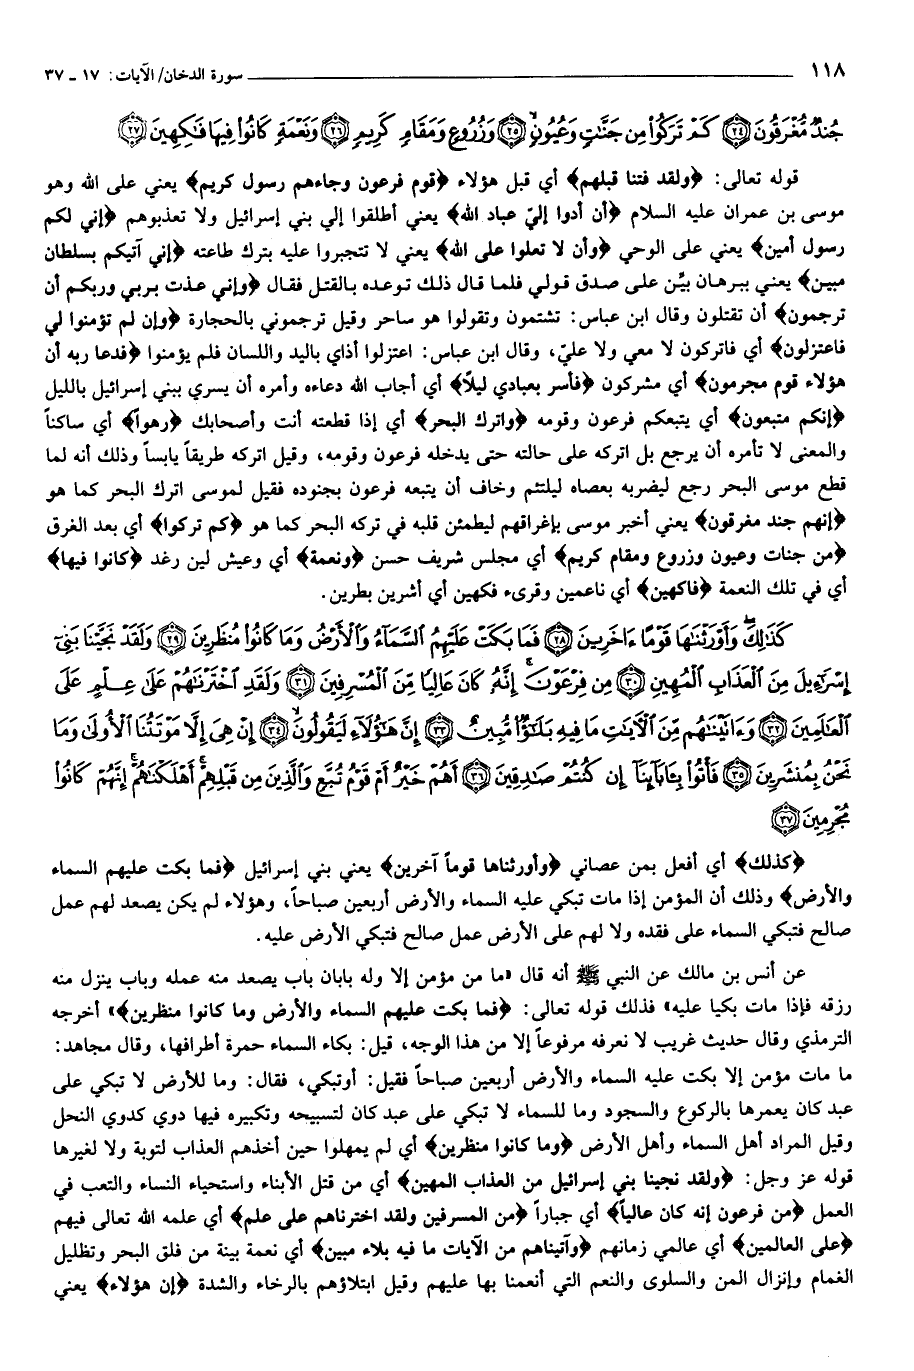 ١١٨ سورة الدخان/ الآيات: ١٧ ـ ٣٧
جُندٌ مُّغْرَقُونَ ﴿٢٤﴾ كَمْ تَرَكُواْ مِن جَنَّٰتٍ وَعُيُونٍ ﴿٢٥﴾ وَزُرُوعٍ وَمَقَامٍ كَرِيمٍ ﴿٢٦﴾ وَنَعْمَةٍ كَانُواْ فِيهَا فَٰكِهِينَ ﴿٢٧﴾
قوله تعالى: ﴿ولقد فتنا قبلهم﴾ أي قبل هؤلاء ﴿قوم فرعون وجاءهم رسول كريم﴾ يعني على الله وهو
موسى بن عمران عليه السلام ﴿أن أدوا إليّ عباد الله﴾ يعني أطلقوا إلي بني إسرائيل ولا تعذبوهم ﴿إني لكم
رسول أمين﴾ يعني على الوحي ﴿وأن لا تعلوا على الله﴾ يعني لا تتجبروا عليه بترك طاعته ﴿إني آتيكم بسلطان
مبين﴾ يعني ببرهان بيِّن على صدق قولي فلما قال ذلك توعده بالقتل فقال ﴿وإني عذت بربي وربكم أن
ترجمون﴾ أن تقتلون وقال ابن عباس: تشتمون وتقولوا هو ساحر وقيل ترجموني بالحجارة ﴿وإن لم تؤمنوا لي
فاعتزلون﴾ أي فاتركون لا معي ولا عليّ، وقال ابن عباس: اعتزلوا أذاي باليد واللسان فلم يؤمنوا ﴿فدعا ربه أن
هؤلاء قوم مجرمون﴾ أي مشركون ﴿فأسر بعبادي ليلاً﴾ أي أجاب الله دعاءه وأمره أن يسري ببني إسرائيل بالليل
﴿إنكم متبعون﴾ أي يتبعكم فرعون وقومه ﴿واترك البحر﴾ أي إذا قطعته أنت وأصحابك ﴿رهواً﴾ أي ساكناً
والمعنى لا تأمره أن يرجع بل اتركه على حالته حتى يدخله فرعون وقومه، وقيل اتركه طريقاً يابساً وذلك أنه لما
قطع موسى البحر رجع ليضربه بعصاه ليلتئم وخاف أن يتبعه فرعون بجنوده فقيل لموسى اترك البحر كما هو
﴿إنهم جند مغرقون﴾ يعني أخبر موسى بإغراقهم ليطمئن قلبه في تركه البحر كما هو ﴿كم تركوا﴾ أي بعد الغرق
﴿من جنات وعيون وزروع ومقام كريم﴾ أي مجلس شريف حسن ﴿ونعمة﴾ أي وعيش لين رغد ﴿كانوا فيها﴾
أي في تلك النعمة ﴿فاكهين﴾ أي ناعمين وقرىء فكهين أي أشرين بطرين.
كَذَٰلِكَ وَأَوْرَثْنَٰهَا قَوْمًا ءَاخَرِينَ ﴿٢٨﴾ فَمَا بَكَتْ عَلَيْهِمُ ٱلسَّمَآءُ وَٱلْأَرْضُ وَمَا كَانُواْ مُنظَرِينَ ﴿٢٩﴾ وَلَقَدْ نَجَّيْنَا بَنِىٓ
إِسْرَٰٓءِيلَ مِنَ ٱلْعَذَابِ ٱلْمُهِينِ ﴿٣٠﴾ مِن فِرْعَوْنَ إِنَّهُۥ كَانَ عَالِيًا مِّنَ ٱلْمُسْرِفِينَ ﴿٣١﴾ وَلَقَدِ ٱخْتَرْنَٰهُمْ عَلَىٰ عِلْمٍ عَلَى
ٱلْعَٰلَمِينَ ﴿٣٢﴾ وَءَاتَيْنَٰهُم مِّنَ ٱلْءَايَٰتِ مَا فِيهِ بَلَٰٓؤٌاْ مُّبِينٌ ﴿٣٣﴾ إِنَّ هَٰٓؤُلَآءِ لَيَقُولُونَ ﴿٣٤﴾ إِنْ هِىَ إِلَّا مَوْتَتُنَا ٱلْأُولَىٰ وَمَا
نَحْنُ بِمُنشَرِينَ ﴿٣٥﴾ فَأْتُواْ بِـَٔابَآئِنَآ إِن كُنتُمْ صَٰدِقِينَ ﴿٣٦﴾ أَهُمْ خَيْرٌ أَمْ قَوْمُ تُبَّعٍ وَٱلَّذِينَ مِن قَبْلِهِمْ أَهْلَكْنَٰهُمْ إِنَّهُمْ كَانُواْ
مُجْرِمِينَ ﴿٣٧﴾
﴿كذلك﴾ أي أفعل بمن عصاني ﴿وأورثناها قوماً آخرين﴾ يعني بني إسرائيل ﴿فما بكت عليهم السماء
والأرض﴾ وذلك أن المؤمن إذا مات تبكي عليه السماء والأرض أربعين صباحاً، وهؤلاء لم يكن يصعد لهم عمل
صالح فتبكي السماء على فقده ولا لهم على الأرض عمل صالح فتبكي الأرض عليه.
عن أنس بن مالك عن النبي ﷺ أنه قال «ما من مؤمن إلا وله بابان باب يصعد منه عمله وباب ينزل منه
رزقه فإذا مات بكيا عليه» فذلك قوله تعالى: ﴿فما بكت عليهم السماء والأرض وما كانوا منظرين﴾» أخرجه
الترمذي وقال حديث غريب لا نعرفه مرفوعاً إلا من هذا الوجه، قيل: بكاء السماء حمرة أطرافها، وقال مجاهد:
ما مات مؤمن إلا بكت عليه السماء والأرض أربعين صباحاً فقيل: أوتبكي، فقال: وما للأرض لا تبكي على
عبد كان يعمرها بالركوع والسجود وما للسماء لا تبكي على عبد كان لتسبيحه وتكبيره فيها دوي كدوي النحل
وقيل المراد أهل السماء وأهل الأرض ﴿وما كانوا منظرين﴾ أي لم يمهلوا حين أخذهم العذاب لتوبة ولا لغيرها
قوله عز وجل: ﴿ولقد نجينا بني إسرائيل من العذاب المهين﴾ أي من قتل الأبناء واستحياء النساء والتعب في
العمل ﴿من فرعون إنه كان عالياً﴾ أي جباراً ﴿من المسرفين ولقد اخترناهم على علم﴾ أي علمه الله تعالى فيهم
﴿على العالمين﴾ أي عالمي زمانهم ﴿وآتيناهم من الآيات ما فيه بلاء مبين﴾ أي نعمة بينة من فلق البحر وتظليل
الغمام وإنزال المن والسلوى والنعم التي أنعمنا بها عليهم وقيل ابتلاؤهم بالرخاء والشدة ﴿إن هؤلاء﴾ يعني